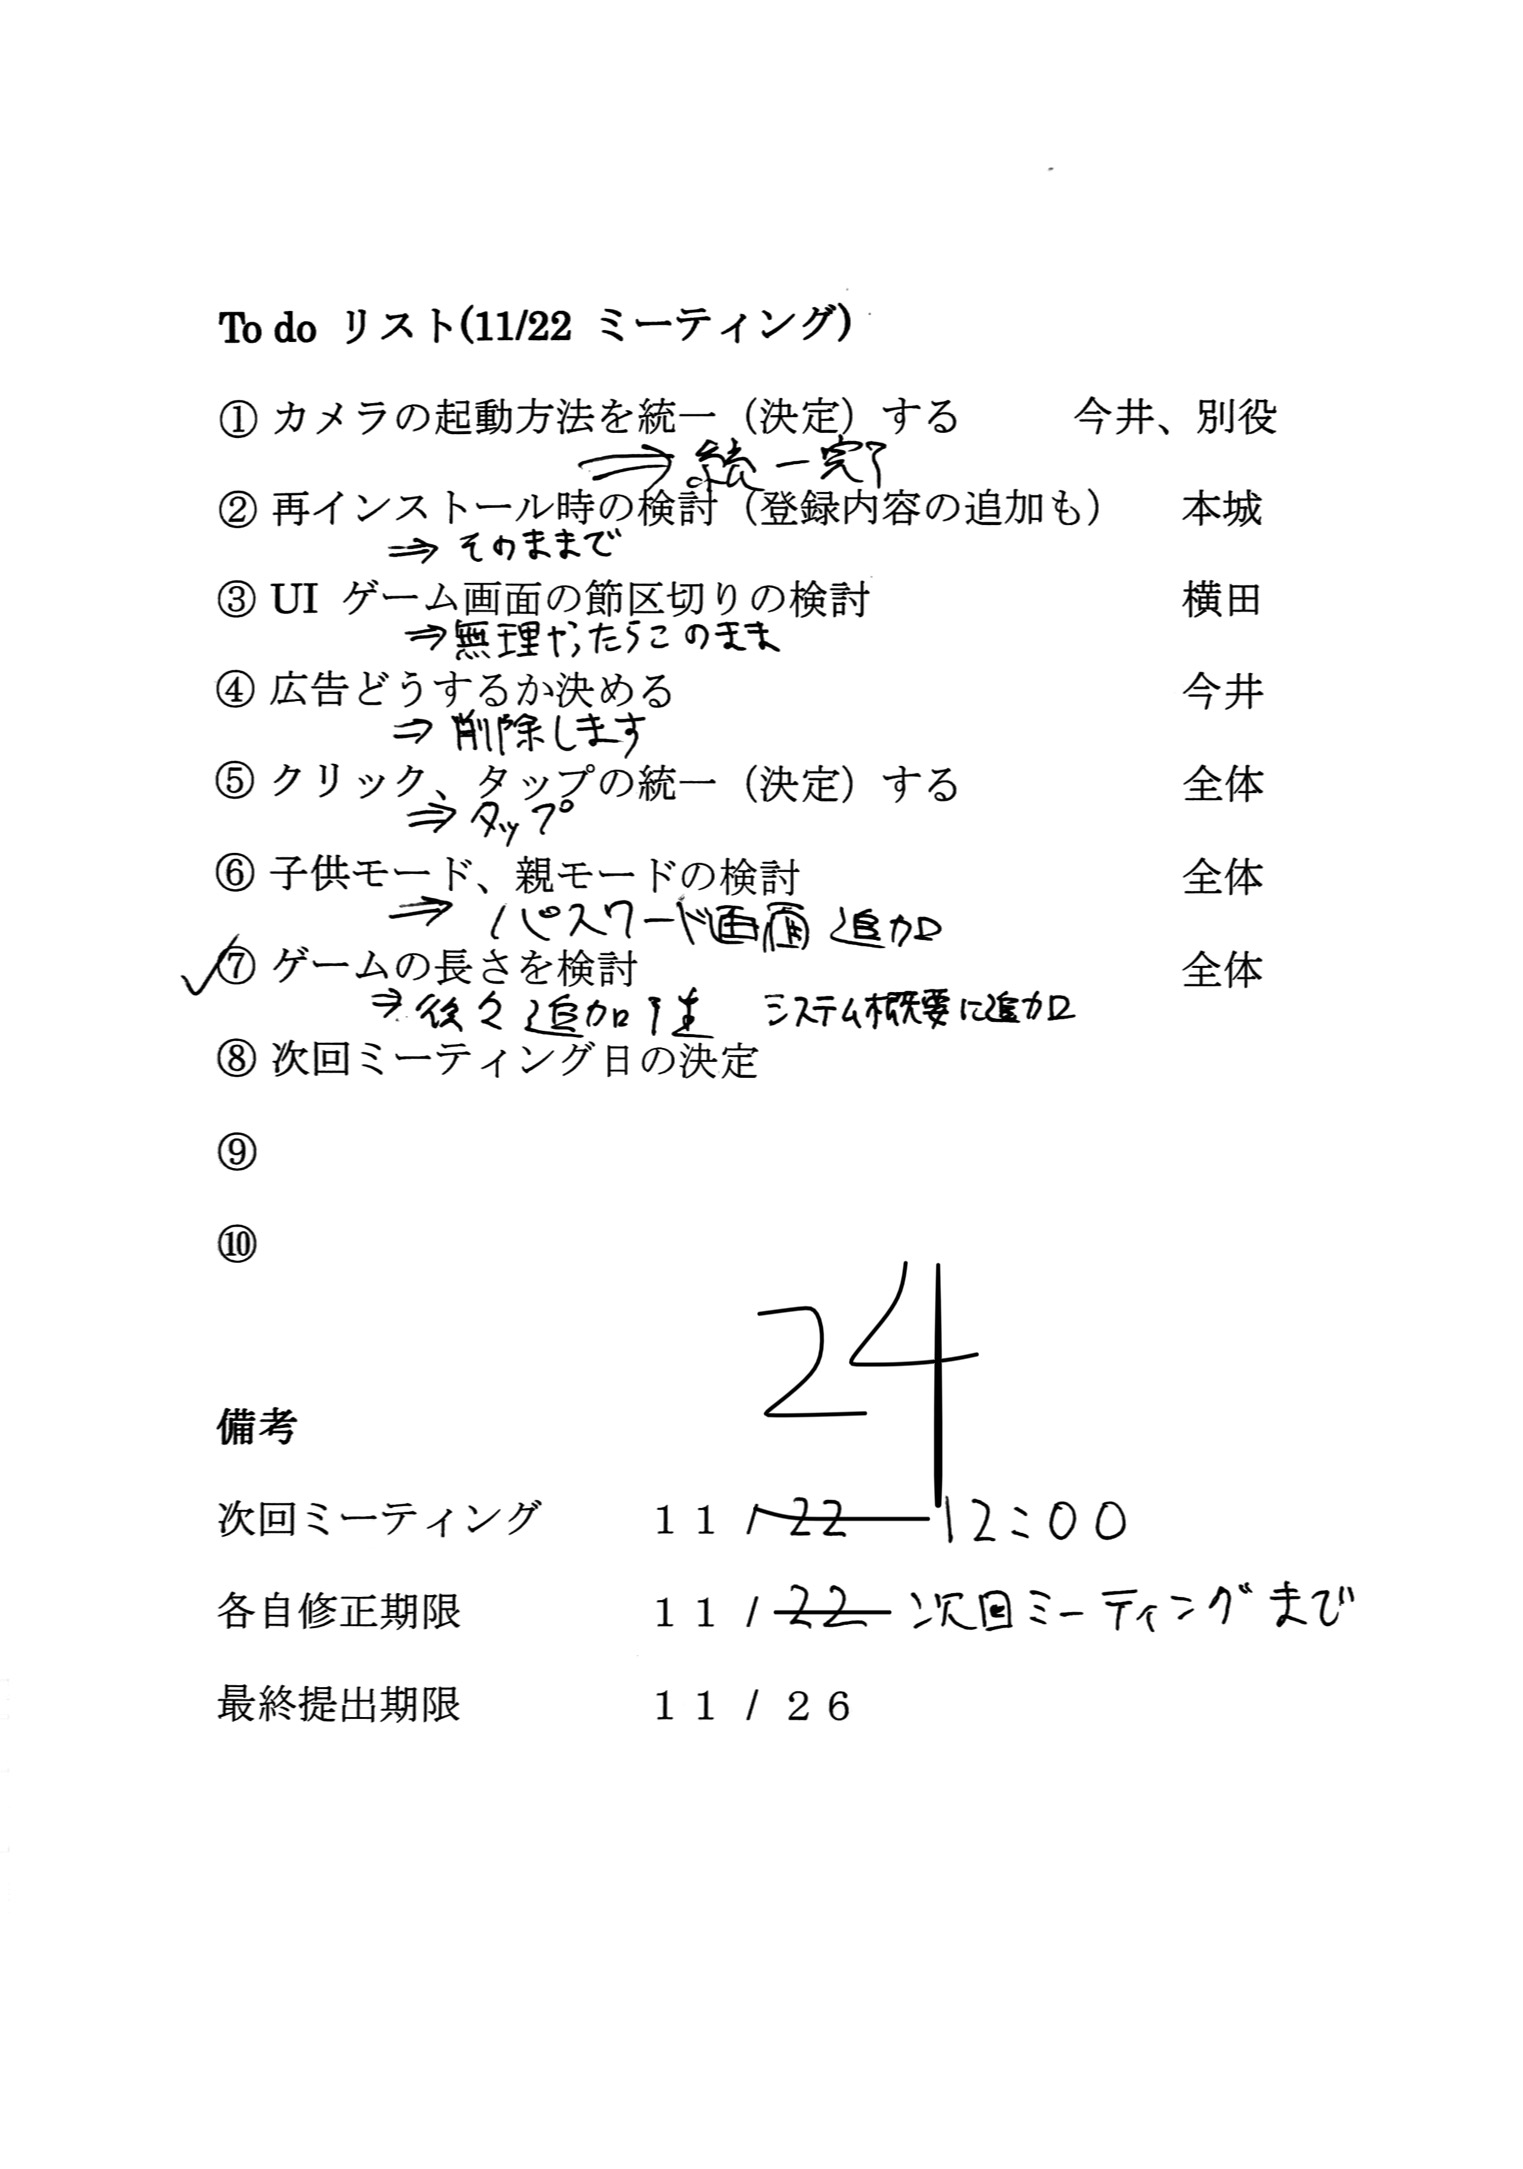 To do リスト(11/22 ミーティング)
① カメラの起動方法を統一（決定）する 今井、別役
⇒ 統一完了
② 再インストール時の検討（登録内容の追加も） 本城
⇒ そのままで
③ UI ゲーム画面の節区切りの検討 横田
⇒ 無理やったらこのまま
④ 広告どうするか決める 今井
⇒ 削除します
⑤ クリック、タップの統一（決定）する 全体
⇒ タップ
⑥ 子供モード、親モードの検討 全体
⇒ パスワード画面 追加
✓⑦ ゲームの長さを検討 全体
⇒ 後々追加 システム概要に追加
⑧ 次回ミーティング日の決定
⑨
⑩
24
備考
次回ミーティング 11/22 12:00
各自修正期限 11/22 次回ミーティングまで
最終提出期限 11/26